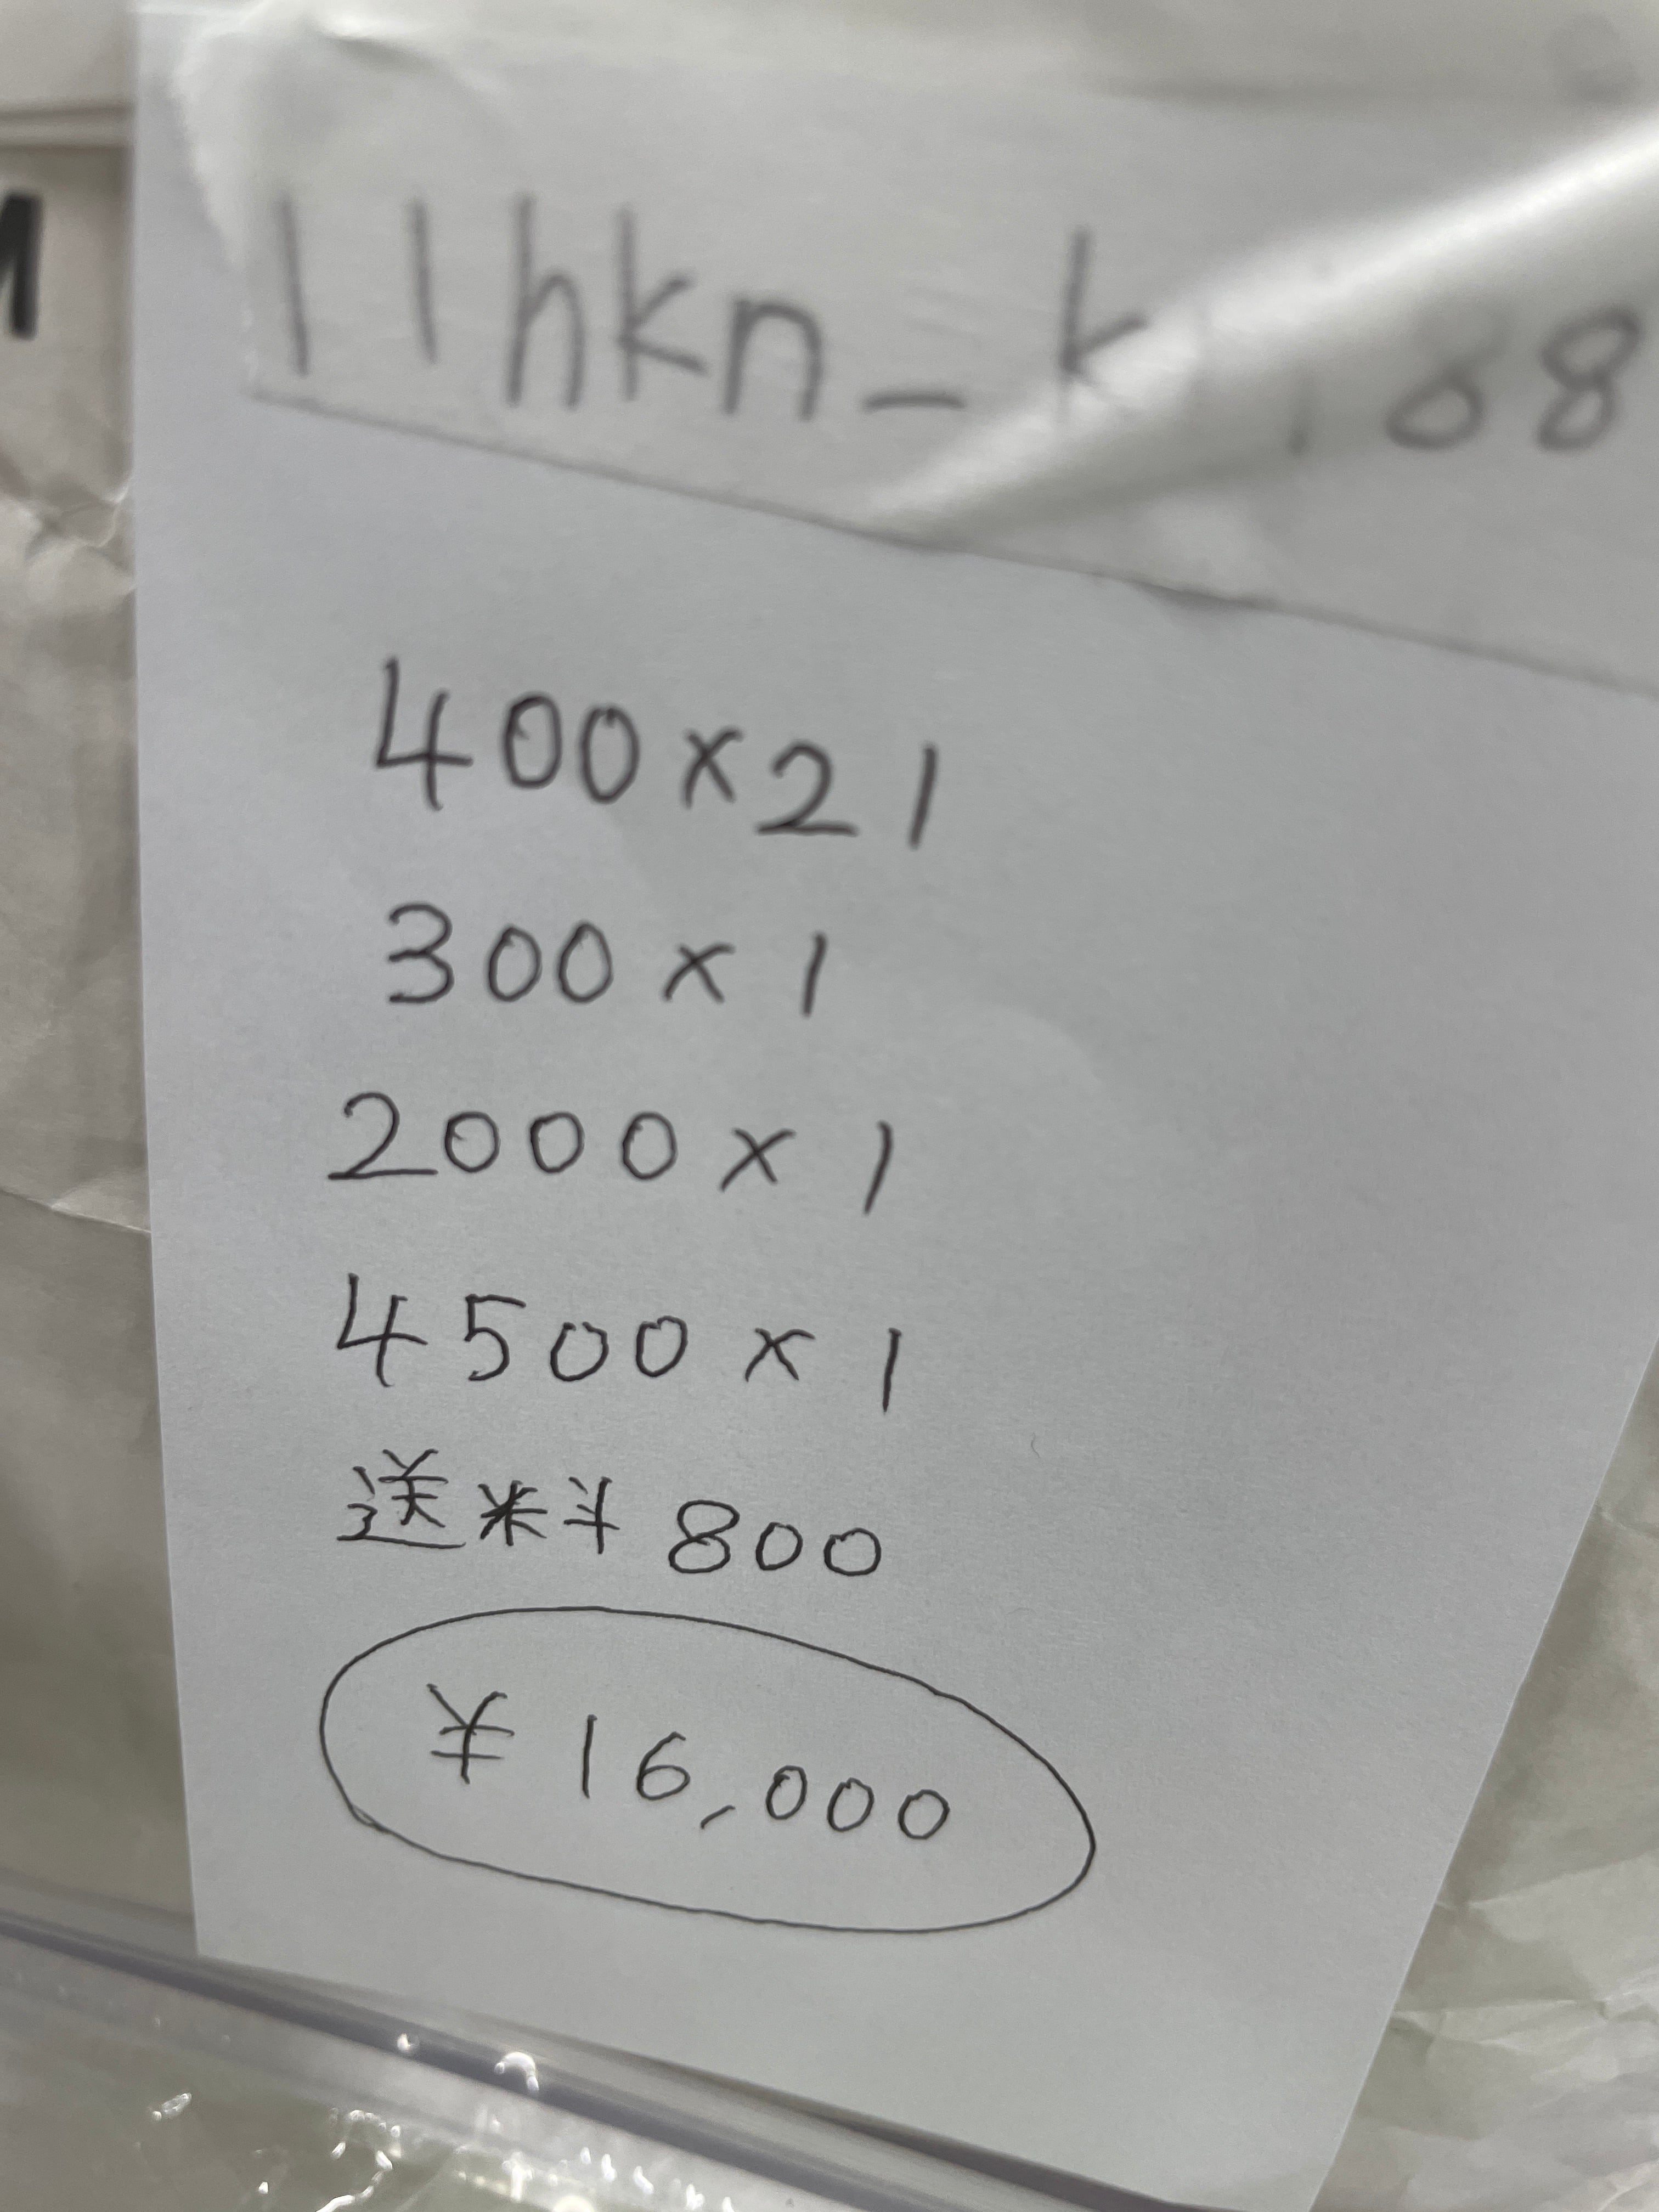 11hkn_
400×21
300×1
2000×1
4500×1
送料 800
¥16,000